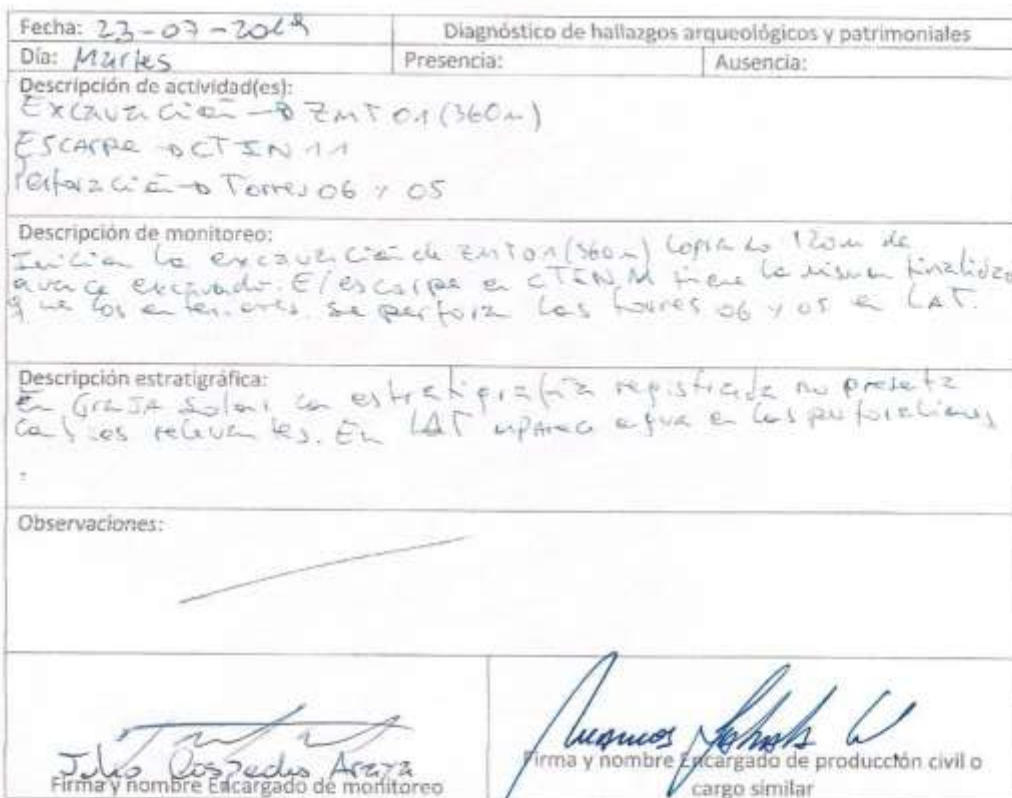 Fecha: 23-07-2019
Diagnóstico de hallazgos arqueológicos y patrimoniales
Día: Martes
Presencia:
Ausencia:
Descripción de actividad(es):
Excavación → ZMT 01 (360m)
Escarpe → CTIN 11
Perforación → Torres 06 y 05
Descripción de monitoreo:
Inician la excavación de ZMT01 (360m) logrando 120m de
avance excavado. El escarpe en CTIN 11 tiene la misma finalidad
que los anteriores. Se perfora las torres 06 y 05 en LAT.
Descripción estratigráfica:
En Granja Solar la estratigrafía registrada no presenta
cambios relevantes. En LAT aparece agua en las perforaciones
.
Observaciones:
Julio Araya
Firma y nombre Encargado de monitoreo
Firma y nombre Encargado de producción civil o
cargo similar